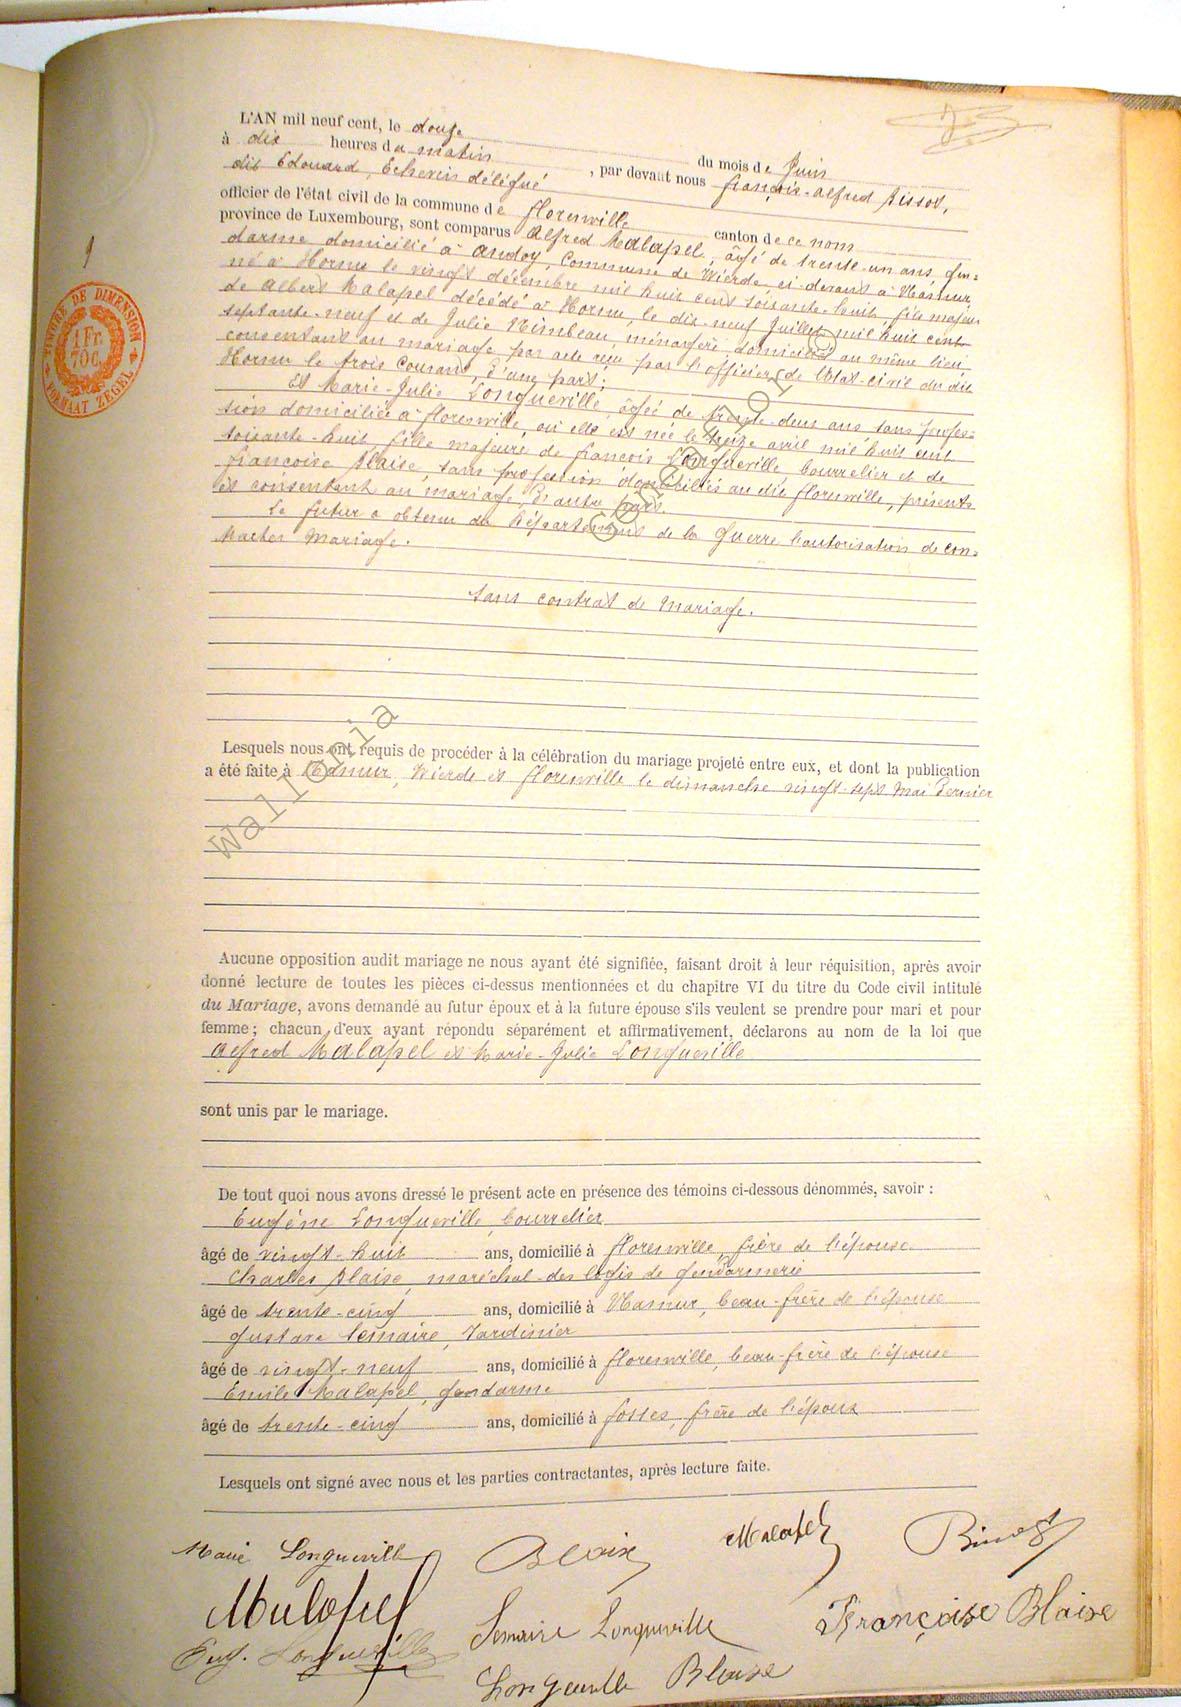 L'AN mil neuf cent, le douze du mois de Juin
à dix heures du matin, par devant nous françois-alfred Bissot,
dit Edouard, Echevin délégué
officier de l'état civil de la commune de florenville canton de ce nom
province de Luxembourg, sont comparus Alfred Malapel, âgé de trente-un ans, gen=
darme domicilié à andoy, Commune de Wierde, ci-devant à Namur,
né à Hornu le vingt décembre mil huit cent soixante-huit, fils majeur
de Albert Malapel décédé à Hornu, le dix-neuf Juillet mil huit cent
septante-neuf et de Julie Nimbeau, ménagère domiciliée au même lieu
consentant au mariage par acte reçu par l'officier de l'état-civil du dit
Hornu le trois Courant, D'une part;
Et Marie-Julie Longueville, âgée de trente-deux ans, sans profes=
sion domiciliée à florenville, où elle est née le treize avril mil huit cent
soixante-huit, fille majeure de francois Longueville, bourrelier et de
francoise Blaise, sans profession domiciliés au dit florenville, présents
et consentant au mariage, D'autre part.
Le futur a obtenu du Département de la Guerre l'autorisation de con=
tracter Mariage.
Sans contrat de Mariage.
Lesquels nous ont requis de procéder à la célébration du mariage projeté entre eux, et dont la publication
a été faite à Namur, Wierde et florenville le dimanche vingt-sept Mai Dernier
Aucune opposition audit mariage ne nous ayant été signifiée, faisant droit à leur réquisition, après avoir
donné lecture de toutes les pièces ci-dessus mentionnées et du chapitre VI du titre du Code civil intitulé
du Mariage, avons demandé au futur époux et à la future épouse s'ils veulent se prendre pour mari et pour
femme; chacun d'eux ayant répondu séparément et affirmativement, déclarons au nom de la loi que
Alfred Malapel et Marie-Julie Longueville
sont unis par le mariage.
De tout quoi nous avons dressé le présent acte en présence des témoins ci-dessous dénommés, savoir :
Eugène Longueville, bourrelier
âgé de vingt-huit ans, domicilié à florenville, frère de l'épouse
Charles Blaise, maréchal-des logis de gendarmerie
âgé de trente-cinq ans, domicilié à Namur, beau-frère de l'épouse
Gustave Lemaire, Jardinier
âgé de vingt-neuf ans, domicilié à florenville, beau-frère de l'épouse
Emile Malapel, gendarme
âgé de trente-cinq ans, domicilié à fosses, frère de l'époux
Lesquels ont signé avec nous et les parties contractantes, après lecture faite.
Marie Longueville Blaise Malapel
Malapel Lemaire Longueville Françoise Blaise
Eug. Longueville
Longueville Blaise
TIMBRE DE DIMENSION
1 Fr.
70 C.
FORMAAT ZEGEL
Wallonia